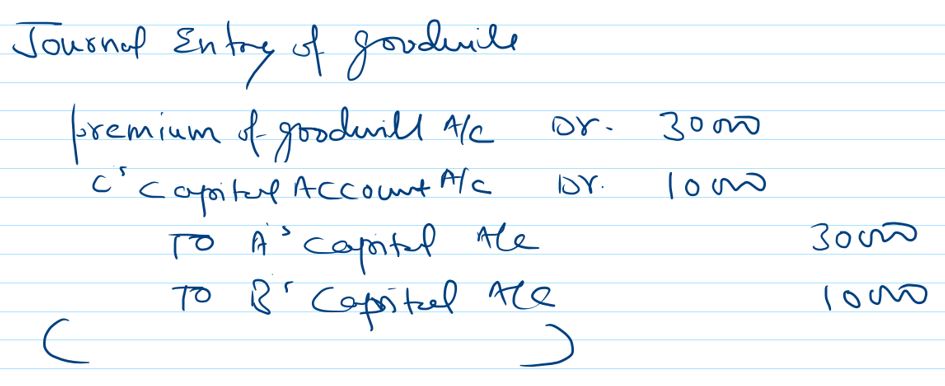 Journal Entry of goodwill
premium of goodwill A/c Dr. 30000
C's Capital Account A/c Dr. 10000
To A's Capital A/c 30000
To B's Capital A/c 10000
( )